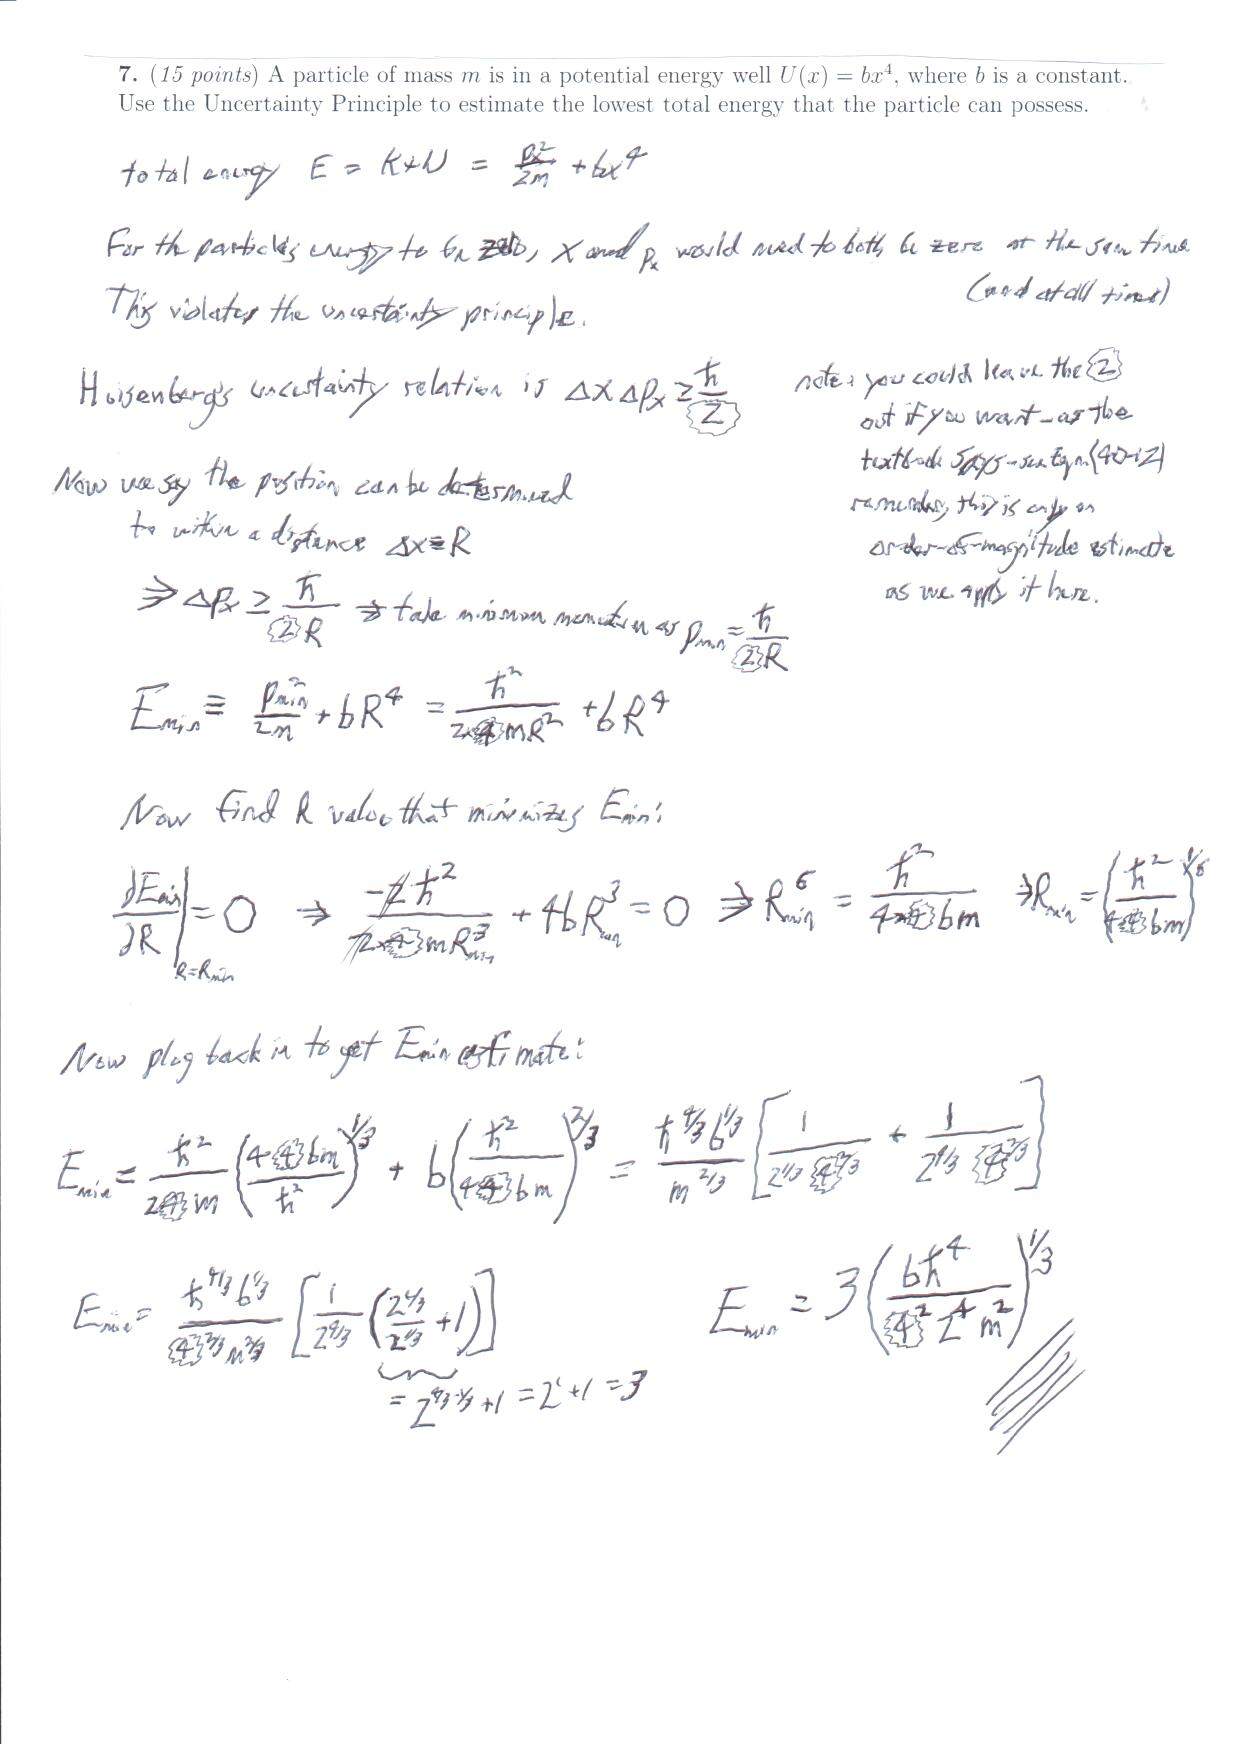 7. (15 points) A particle of mass m is in a potential energy well U(x) = bx⁴, where b is a constant.
Use the Uncertainty Principle to estimate the lowest total energy that the particle can possess.
total energy E = K+U = pₓ²/2m + bx⁴
For the particle's energy to be zero, x and pₓ would need to both be zero at the same time
(and at all times)
This violates the uncertainty principle.
Heisenberg's uncertainty relation is Δx Δpₓ ≥ ħ/2
note: you could leave the 2
out if you want - as the
textbook says - see Eqn (40-12)
remember, this is only an
order-of-magnitude estimate
as we apply it here.
Now we say the position can be determined
to within a distance Δx≡R
⇒ Δpₓ ≥ ħ/(2)R ⇒ take minimum momentum as p_min = ħ/(2)R
E_min ≡ p_min²/2m + bR⁴ = ħ²/(2×(4)mR²) + bR⁴
Now find R value that minimizes E_min:
∂E_min/∂R |_(R=R_min) = 0 ⇒ -2ħ²/(2×(4)mR_min³) + 4bR_min³ = 0 ⇒ R_min⁶ = ħ²/(4×(4)bm) ⇒ R_min = (ħ²/(4(4)bm))^(1/6)
Now plug back in to get E_min estimate:
E_min = ħ²/(2(4)m) (4(4)bm/ħ²)^(1/3) + b(ħ²/(4(4)bm))^(2/3) = ħ^(4/3) b^(1/3)/m^(2/3) [1/(2^(1/3) (4)^(2/3)) + 1/(2^(4/3) (4)^(2/3))]
E_min = ħ^(4/3) b^(1/3)/((4)^(2/3) m^(2/3)) [1/2^(4/3) (2^(4/3)/2^(1/3) + 1)]
= 2^(4/3-1/3) +1 = 2¹+1 = 3
E_min = 3(bħ⁴/((4)² 2⁴ m²))^(1/3)